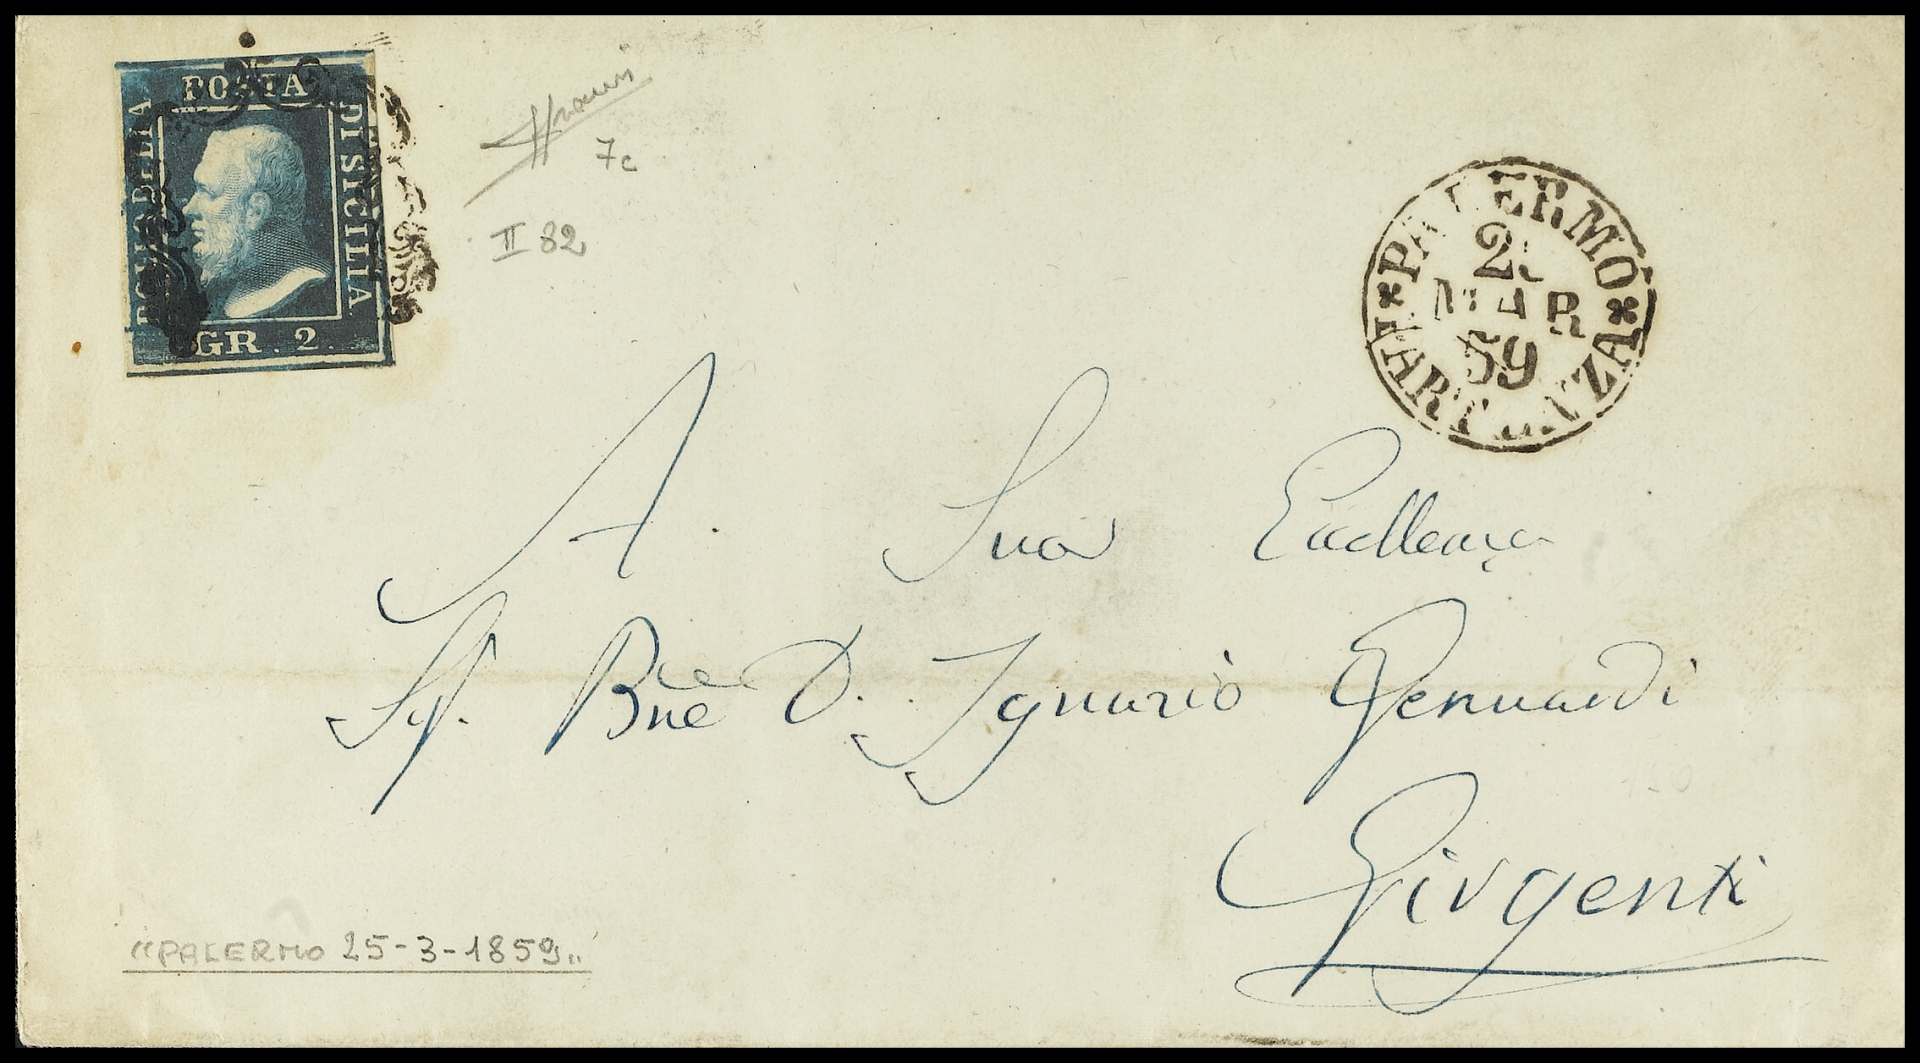 POSTA
BOLLO DELLA
DI SICILIA
GR. 2.
7c
II 82
PALERMO
25
MAR
59
PARTENZA
A Sua Eccellenza
Sig. Bne D. Ignazio Genuardi
Girgenti
"PALERMO 25-3-1859"